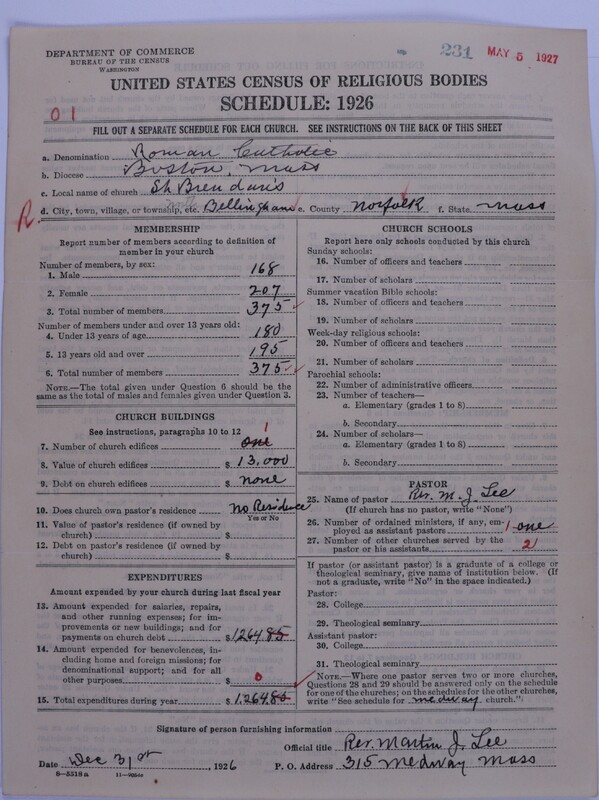 DEPARTMENT OF COMMERCE
BUREAU OF THE CENSUS
WASHINGTON
231 MAY 5 1927
UNITED STATES CENSUS OF RELIGIOUS BODIES
SCHEDULE: 1926
0 1
FILL OUT A SEPARATE SCHEDULE FOR EACH CHURCH. SEE INSTRUCTIONS ON THE BACK OF THIS SHEET
a. Denomination Roman Catholic
b. Diocese Boston, Mass
c. Local name of church St Brendan's
R d. City, town, village, or township, etc. North Bellingham e. County Norfolk f. State Mass
MEMBERSHIP
Report number of members according to definition of
member in your church
Number of members, by sex:
1. Male 168
2. Female 207
3. Total number of members 375
Number of members under and over 13 years old:
4. Under 13 years of age 180
5. 13 years old and over 195
6. Total number of members 375
NOTE.—The total given under Question 6 should be
same as the total of males and females given under Question 3.
CHURCH BUILDINGS
See instructions, paragraphs 10 to 12
7. Number of church edifices one 1
8. Value of church edifices $ 13,000
9. Debt on church edifices $ none
10. Does church own pastor's residence no Residence
Yes or No
11. Value of pastor's residence (if owned by
church) $
12. Debt on pastor's residence (if owned by
church) $
EXPENDITURES
Amount expended by your church during last fiscal year
13. Amount expended for salaries, repairs,
and other running expenses; for im-
provements or new buildings; and for
payments on church debt $ 1,264.85
14. Amount expended for benevolences, in-
cluding home and foreign missions; for
denominational support; and for all
other purposes $ 0
15. Total expenditures during year $ 1,264.85
CHURCH SCHOOLS
Report here only schools conducted by this church
Sunday schools:
16. Number of officers and teachers
17. Number of scholars
Summer vacation Bible schools:
18. Number of officers and teachers
19. Number of scholars
Week-day religious schools:
20. Number of officers and teachers
21. Number of scholars
Parochial schools:
22. Number of administrative officers
23. Number of teachers—
a. Elementary (grades 1 to 8)
b. Secondary
24. Number of scholars—
a. Elementary (grades 1 to 8)
b. Secondary
PASTOR
25. Name of pastor Rev. M. J. Lee
(If church has no pastor, write "None")
26. Number of ordained ministers, if any, em-
ployed as assistant pastors 1 one
27. Number of other churches served by the
pastor or his assistants 2
If pastor (or assistant pastor) is a graduate of a college or
theological seminary, give name of institution below. (If
not a graduate, write "No" in the space indicated.)
Pastor:
28. College
29. Theological seminary
Assistant pastor:
30. College
31. Theological seminary
NOTE.—Where one pastor serves two or more churches,
Questions 28 and 29 should be answered only on the schedule
for one of the churches; on the schedules for the other churches,
write "See schedule for medway church."
Signature of person furnishing information
Official title Rev. Martin J. Lee
Date Dec 31st, 1926 P. O. Address 315 Medway Mass